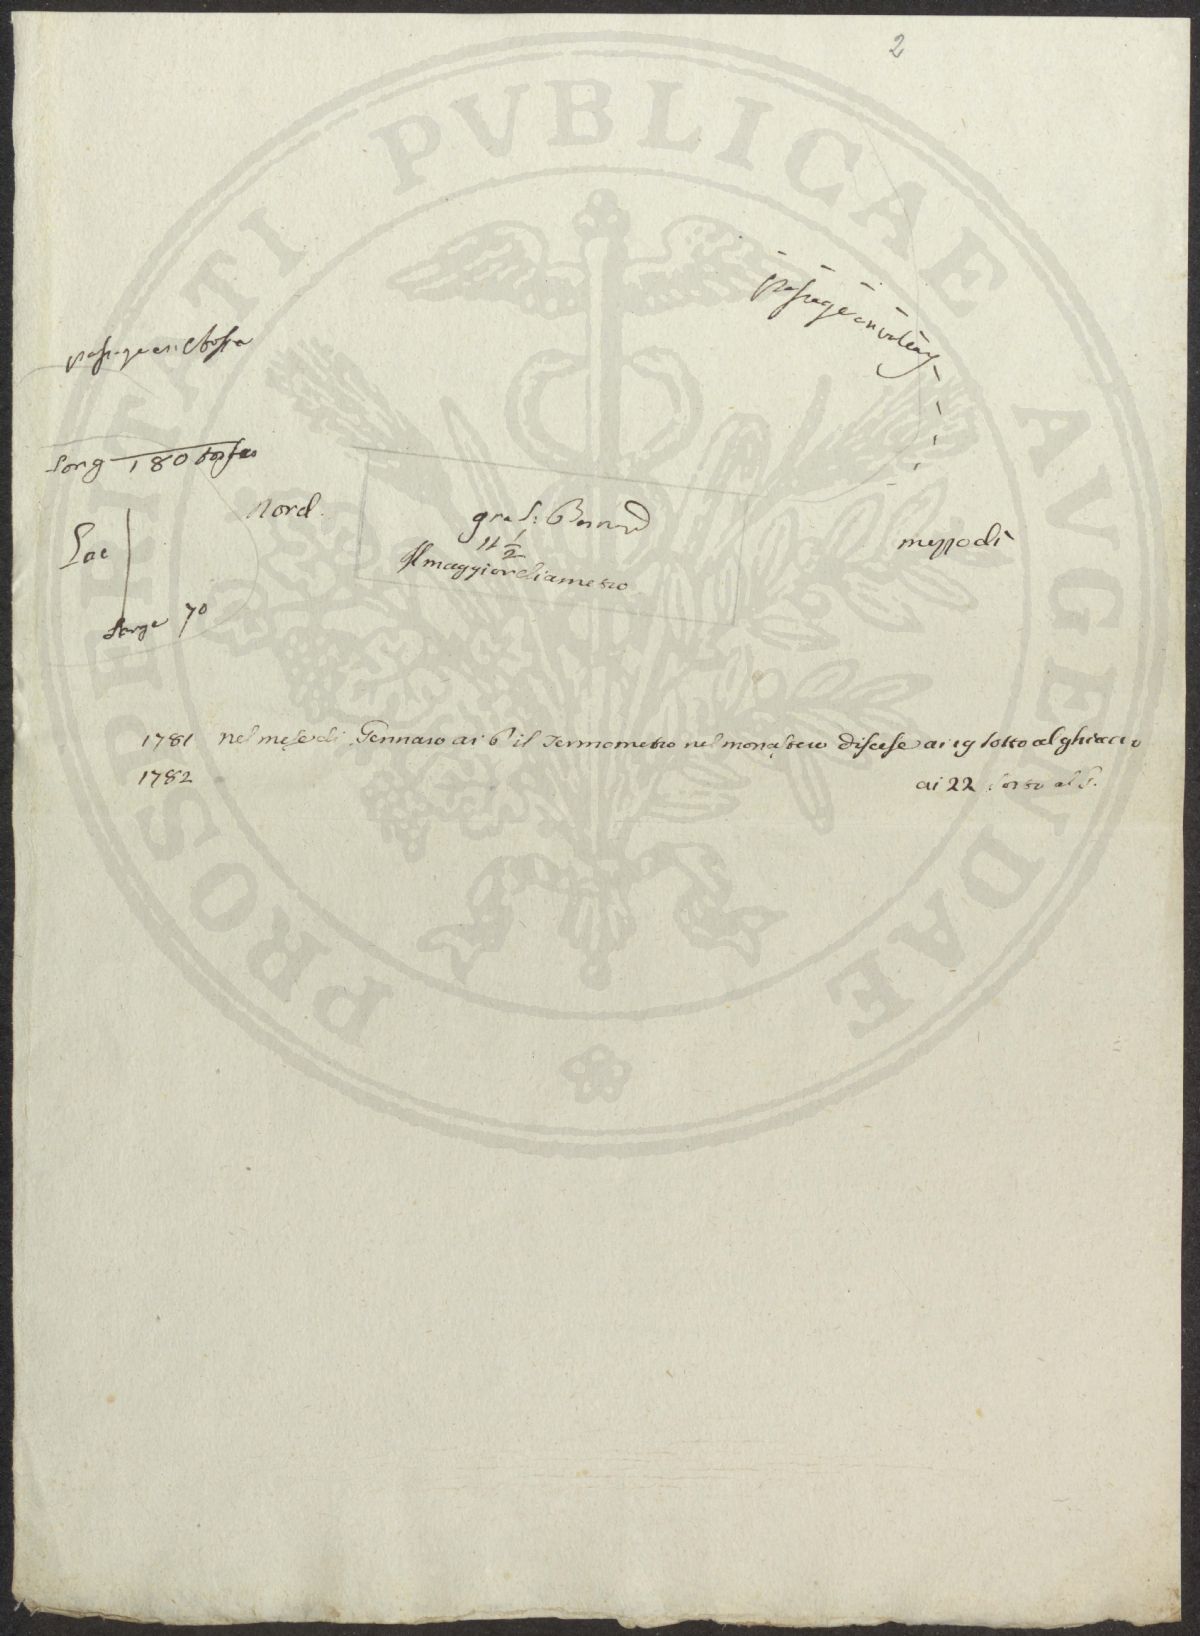 2
PROSPERITATI PVBLICAE AVGENDAE
passage en
passage en
long 180
Nord.
Lac
large 70
gra S. Bernard
11 1/2
Il maggior diametro
mezzodì
1781 nel mese di Gennaro ai 6 il Termometro nel monastero discese ai 19 sotto al ghiaccio
1782 ai 22 sotto al g.